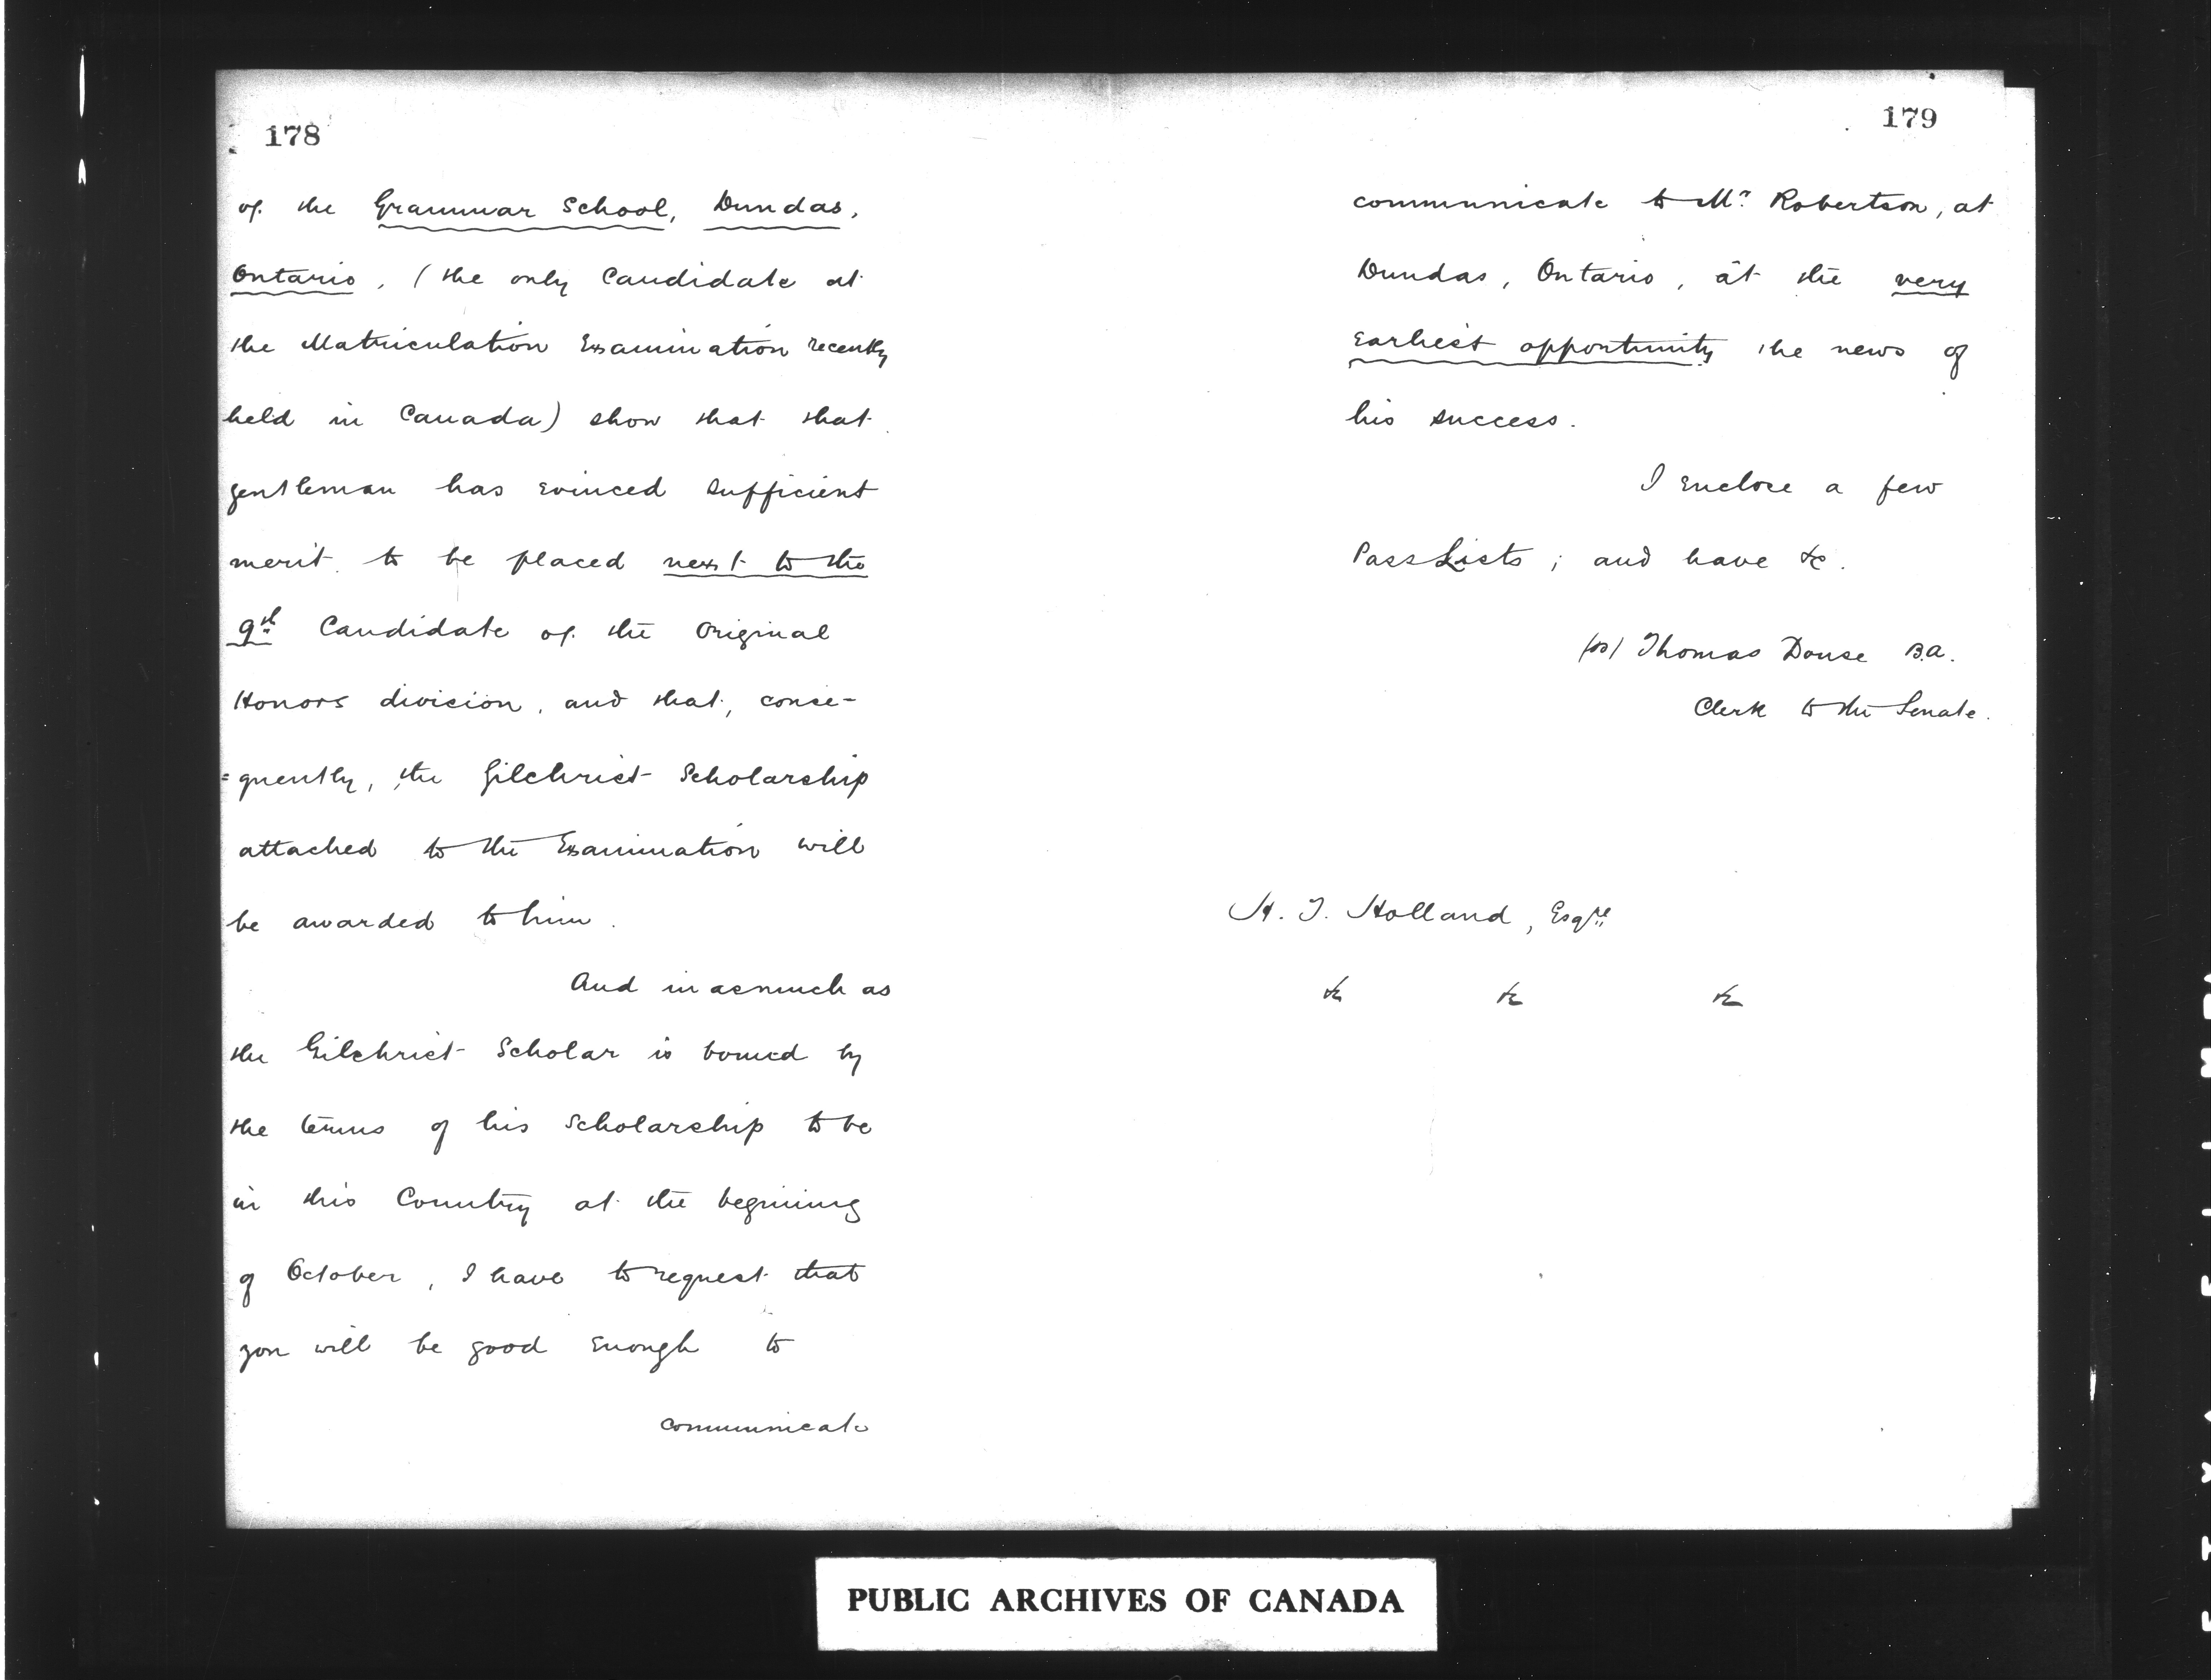 178
of the Grammar School, Dundas,
Ontario, (the only Candidate at
the Matriculation Examination recently
held in Canada) show that that
gentleman has evinced sufficient
merit to be placed next to the
9th Candidate of the Original
Honors division, and that, conse-
=quently, the Gilchrist Scholarship
attached to the Examination will
be awarded to him.
And in asmuch as
the Gilchrist Scholar is bound by
the terms of his Scholarship to be
in this Country at the begining
of October, I have to request that
you will be good enough to
communicate
179
communicate to Mr. Robertson, at
Dundas, Ontario, at the very
earliest opportunity the news of
his success.
I enclose a few
Pass Lists; and have &c.
(sd) Thomas Douse B.A.
Clerk to the Senate.
H. T. Holland, Esqre
&c &c &c
PUBLIC ARCHIVES OF CANADA